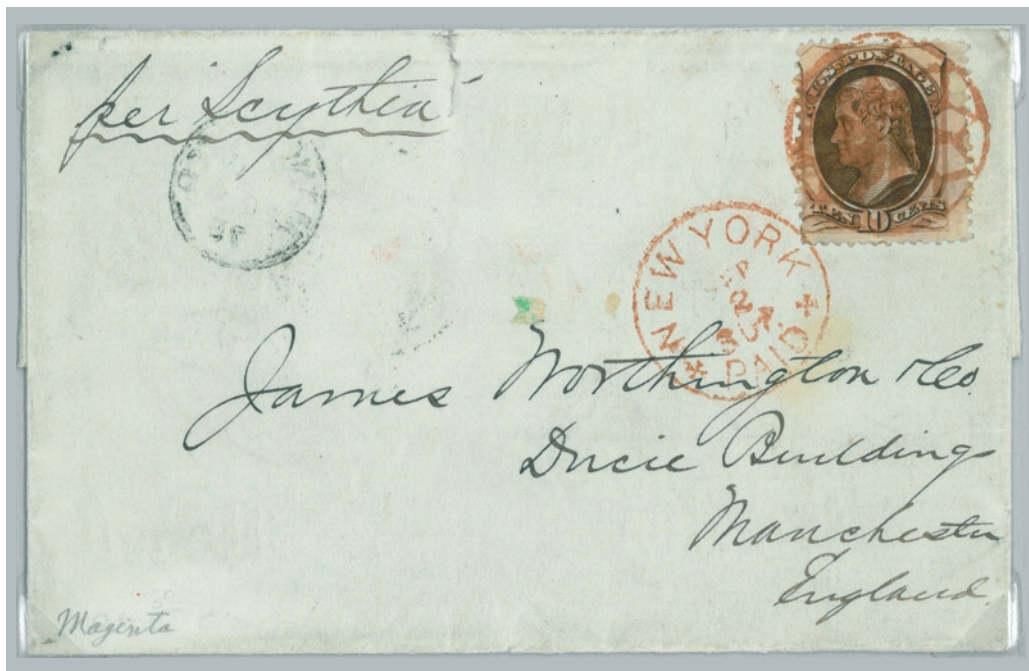 per "Scythia"
U.S. POSTAGE
TEN 10 CENTS
NEW YORK
2
PAID
James Worthington & Co.
Ducie Buildings
Manchester
England.
Magenta